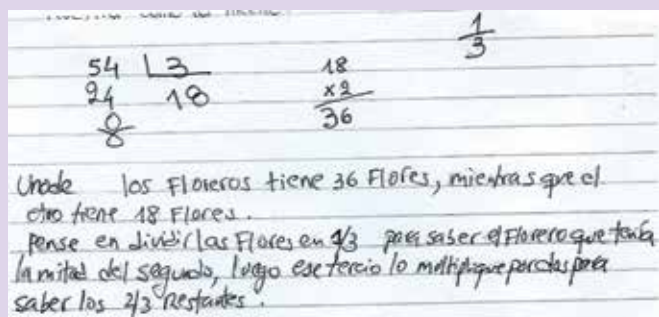 1
3
54 3 18
24 18 x2
0 36
Uno de los Floreros tiene 36 Flores, mientras que el
otro tiene 18 Flores.
Pense en dividir las Flores en 1/3 para saber el Florero que tenía
la mitad del segundo, luego ese tercio lo multiplique por dos para
saber los 2/3 Restantes.